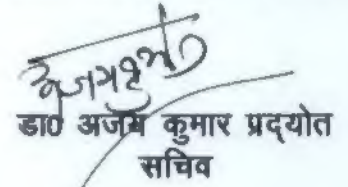 डा० अजय कुमार प्रद्योत
सचिव